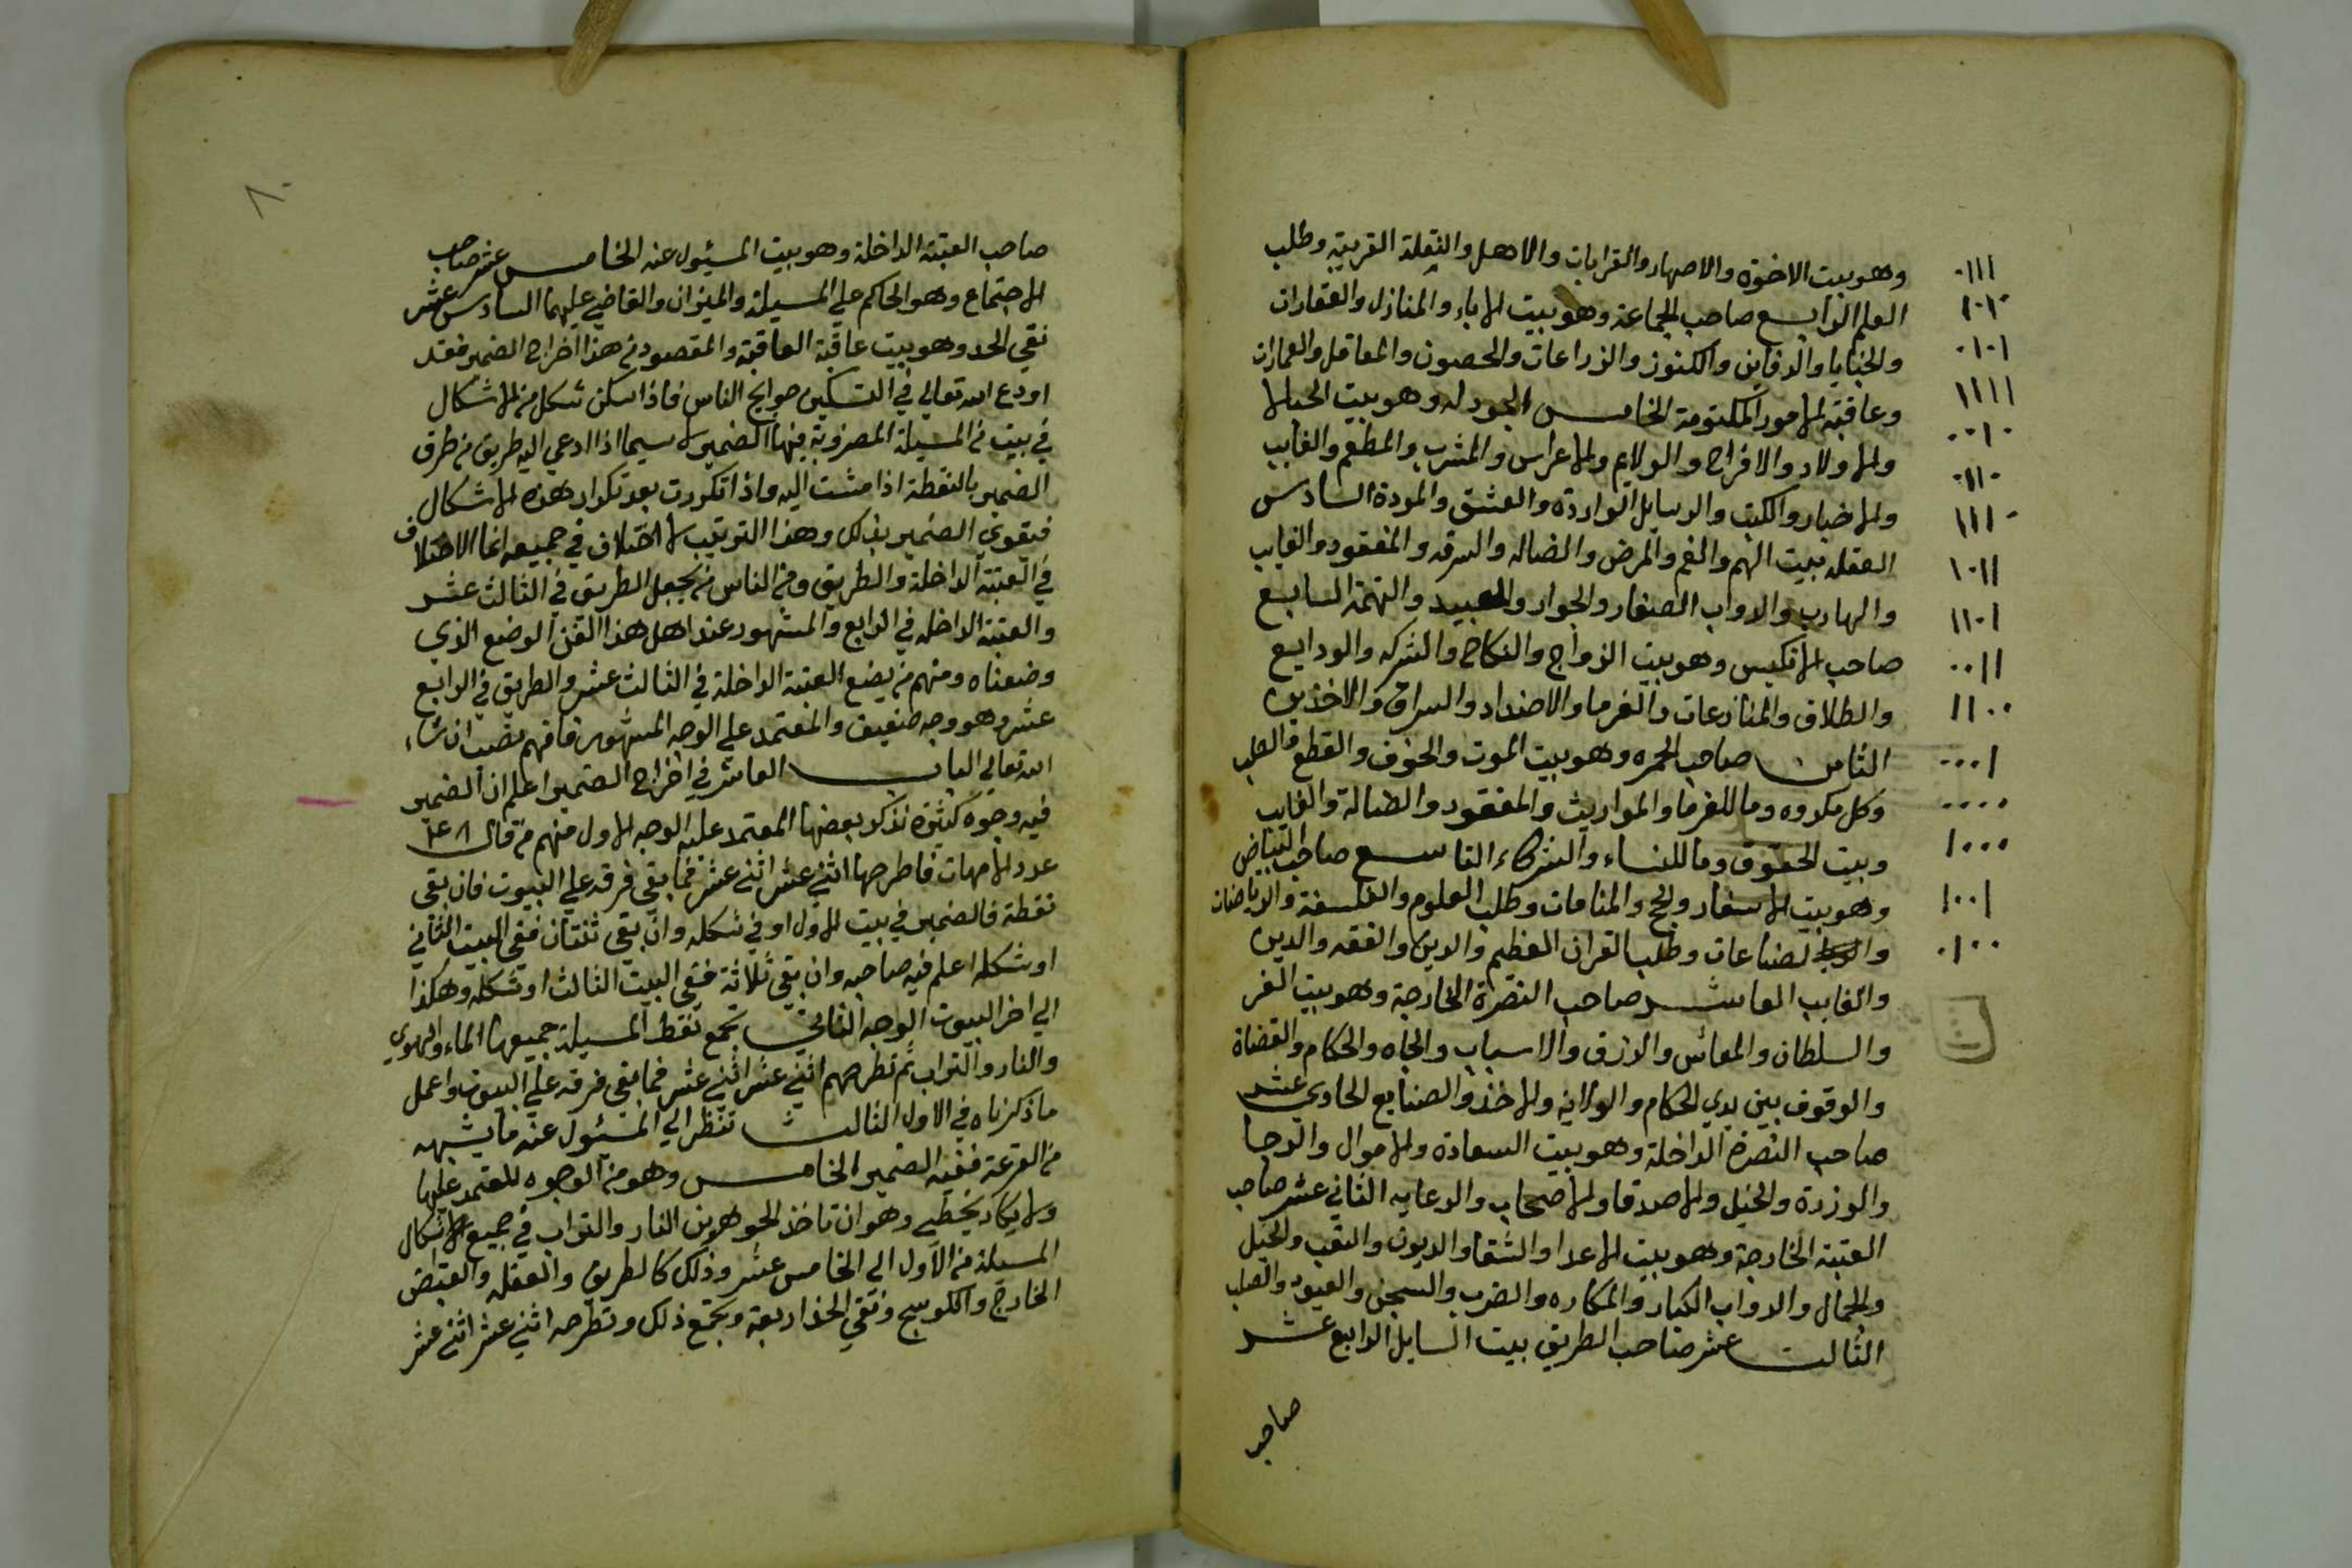 وهو بيت الاخوة والاصهار والقرابات والاهل والنقلة القريبة وطلب
العلم الرابع صاحب الجماعة وهو بيت الاباء والمنازل والعقارات
والخبايا والدفاين والكنوز والزراعات والحصون والمعاقل والعمارات
وعاقبة الامور المكتومة الخامس الجودله وهو بيت الحبالا
والاولاد والافراح والولايم والاعراس والمشرب والمطعم والغايب
والاخبار والكتب والرسايل الواردة والعشق والمودة السادس
العقله بيت الهم والغم والمرض والضاله والسرقه والمفقود والغايب
والهارب والدواب الصغار والجوار والعبيد والتهمة السابع
صاحب الانكيس وهو بيت الزواج والنكاح والشركه والودايع
والطلاق والمنازعات والغرما والاضداد والسراق والاخذين
الثامن صاحب الحمره وهو بيت الموت والخوف والقطع والصلب
وكل مكروه ومال الغرما والمواريث والمفقود والضالة والغايب
وبيت الحقوق ومال النساء والشركاء التاسع صاحب البياض
وهو بيت الاسفار والحج والمنامات وطلب العلوم والفلسفة والرياضات
والصناعات وطلب القران العظيم والدين والفقه والدين
والغايب العاشر صاحب النصرة الخارجة وهو بيت العز
والسلطان والمعائس والارزق والاسباب والجاه والحكام والقضاة
والوقوف بين يدي الحكام والولاية والاخذ والصنايع الحادي عشر
صاحب النصرة الداخلة وهو بيت السعادة والاموال والرجا
والوزرة والخيل والاصدقا والاصحاب والدعايه الثاني عشر صاحب
العتبة الخارجة وهو بيت الاعدا والشقا والديون والتعب والخيل
والجمال والدواب الكبار والمكاره والضرب والسجن والقيود والصلب
الثالث عشر صاحب الطريق بيت السايل الرابع عشر
صاحب
٨٠
صاحب العتبة الداخلة وهو بيت المسئول عنه الخامس عشر صاحب
الاجتماع وهو الحاكم علي المسيلة والميزان والقاضي عليهما السادس عشر
نقي الخد وهو بيت عاقبة العاقبة والمقصود من هذا اخراج الضمير فقد
اودع الله تعالي في التسكين حوايج الناس فاذا سكن شكل من الاشكال
في بيت من المسيلة المضروبة فيها الضمير لا سيما اذا ادعي اليه طريق من طرق
الضمير بالنقطة اذا مشت اليه واذا تكررت بعد تكرار هذه الاشكال
فيقوي الضمير بذلك وهذا الترتيب لا اختلاف في جميعه انما الاختلاف
في العتبة الداخلة والطريق ومن الناس من يجعل الطريق في الثالث عشر
والعتبة الداخله في الرابع والمشهور عند اهل هذا الفن الوضع الذي
وضعناه ومنهم من يضع العتبة الداخلة في الثالث عشر والطريق في الرابع
عشر وهو وجه ضعيف والمعتمد علي الوجه المشهور فافهم تصب ان شاء
الله تعالي الباب العاشر في اخراج الضمير اعلم ان الضمير
فيه وجوه كثيرة نذكر بعضها المعتمد عليه الوجه الاول منهم من قال
عدد الامهات فاطرحها اثني عشر اثني عشر فما بقي فرقه علي البيوت فان بقي
نقطة فالضمير في بيت الاول او في شكله وان بقي ثنتان ففي البيت الثاني
او شكله اعلم فيه صاحبه وان بقي ثلاثة ففي البيت الثالث او شكله وهكذا
الي اخر البيوت الوجه الثاني تجمع نقط المسيلة جميعها الماء والهوي
والنار والتراب ثم تطرحهم اثني عشر اثني عشر فما بقي فرقه علي البيوت واعمل
ماذكرناه في الاول الثالث تنظر الي المسئول عنه ما يشبهه
من القرعة ففيه الضمير الخامس وهو من الوجوه المعتمد عليها
ولا يكاد يخطي وهو ان تاخذ الجوهرين النار والتراب في جميع الاشكال
المسيلة من الاول الي الخامس عشر وذلك كالطريق والعقله والقبض
الخارج والكوسج ونقي الخد اربعة وتجمع ذلك وتطرحه اثني عشر اثني عشر